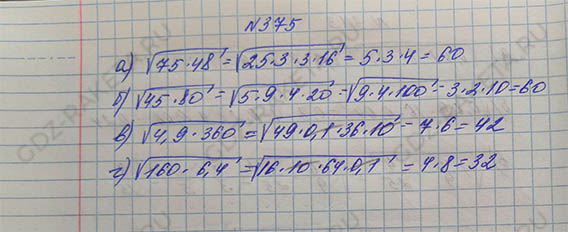 №375
а) √75·48 = √25·3·3·16 = 5·3·4 = 60
б) √45·80 = √5·9·4·20 = √9·4·100 = 3·2·10 = 60
в) √4,9·360 = √49·0,1·36·10 = 7·6 = 42
г) √160·6,4 = √16·10·64·0,1 = 4·8 = 32